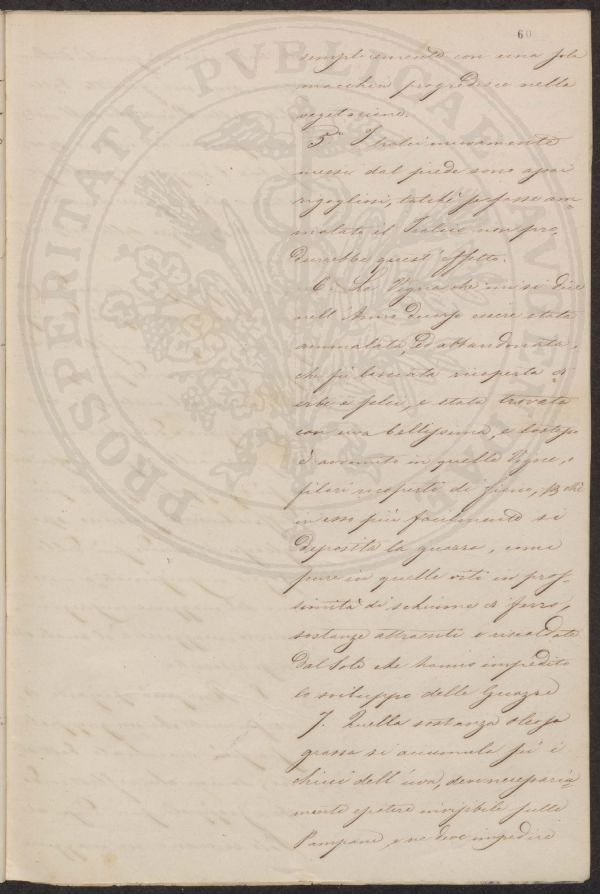 60
semplicemente con una sola
macchia progredisce nella
vegetazione.
5.° I tralci nuovamente
messi dal piede sono assai
rigogliosi, talchè se fosse am=
malato il Tralcio non pro,
durrebbe quest'effetto.
6. La Vigna che mi si dice
nell'Anno essere stata
ammalata, ed abbandonata,
che fù lasciata ricoperta di
erbe e felci, è stata trovata
con uva bellissima, e lo stesso
è avvenuto in quelle Vigne, o
filari ricoperti di fieno,
in esso più facilmente si
deposita la guazza, come
pure in quelle viti in pros=
simità di schiume di ferro,
sostanze attraenti e riscaldate
dal Sole che hanno impedito
lo sviluppo delle Guazze
7. Quella sostanza oleosa
grassa si accumula sù i
chicci dell'uva, deve necessaria=
mente esistere invisibile sulle
Pampane, e ne deve impedire
PROSPERITATI PVBLICAE AVGENDAE